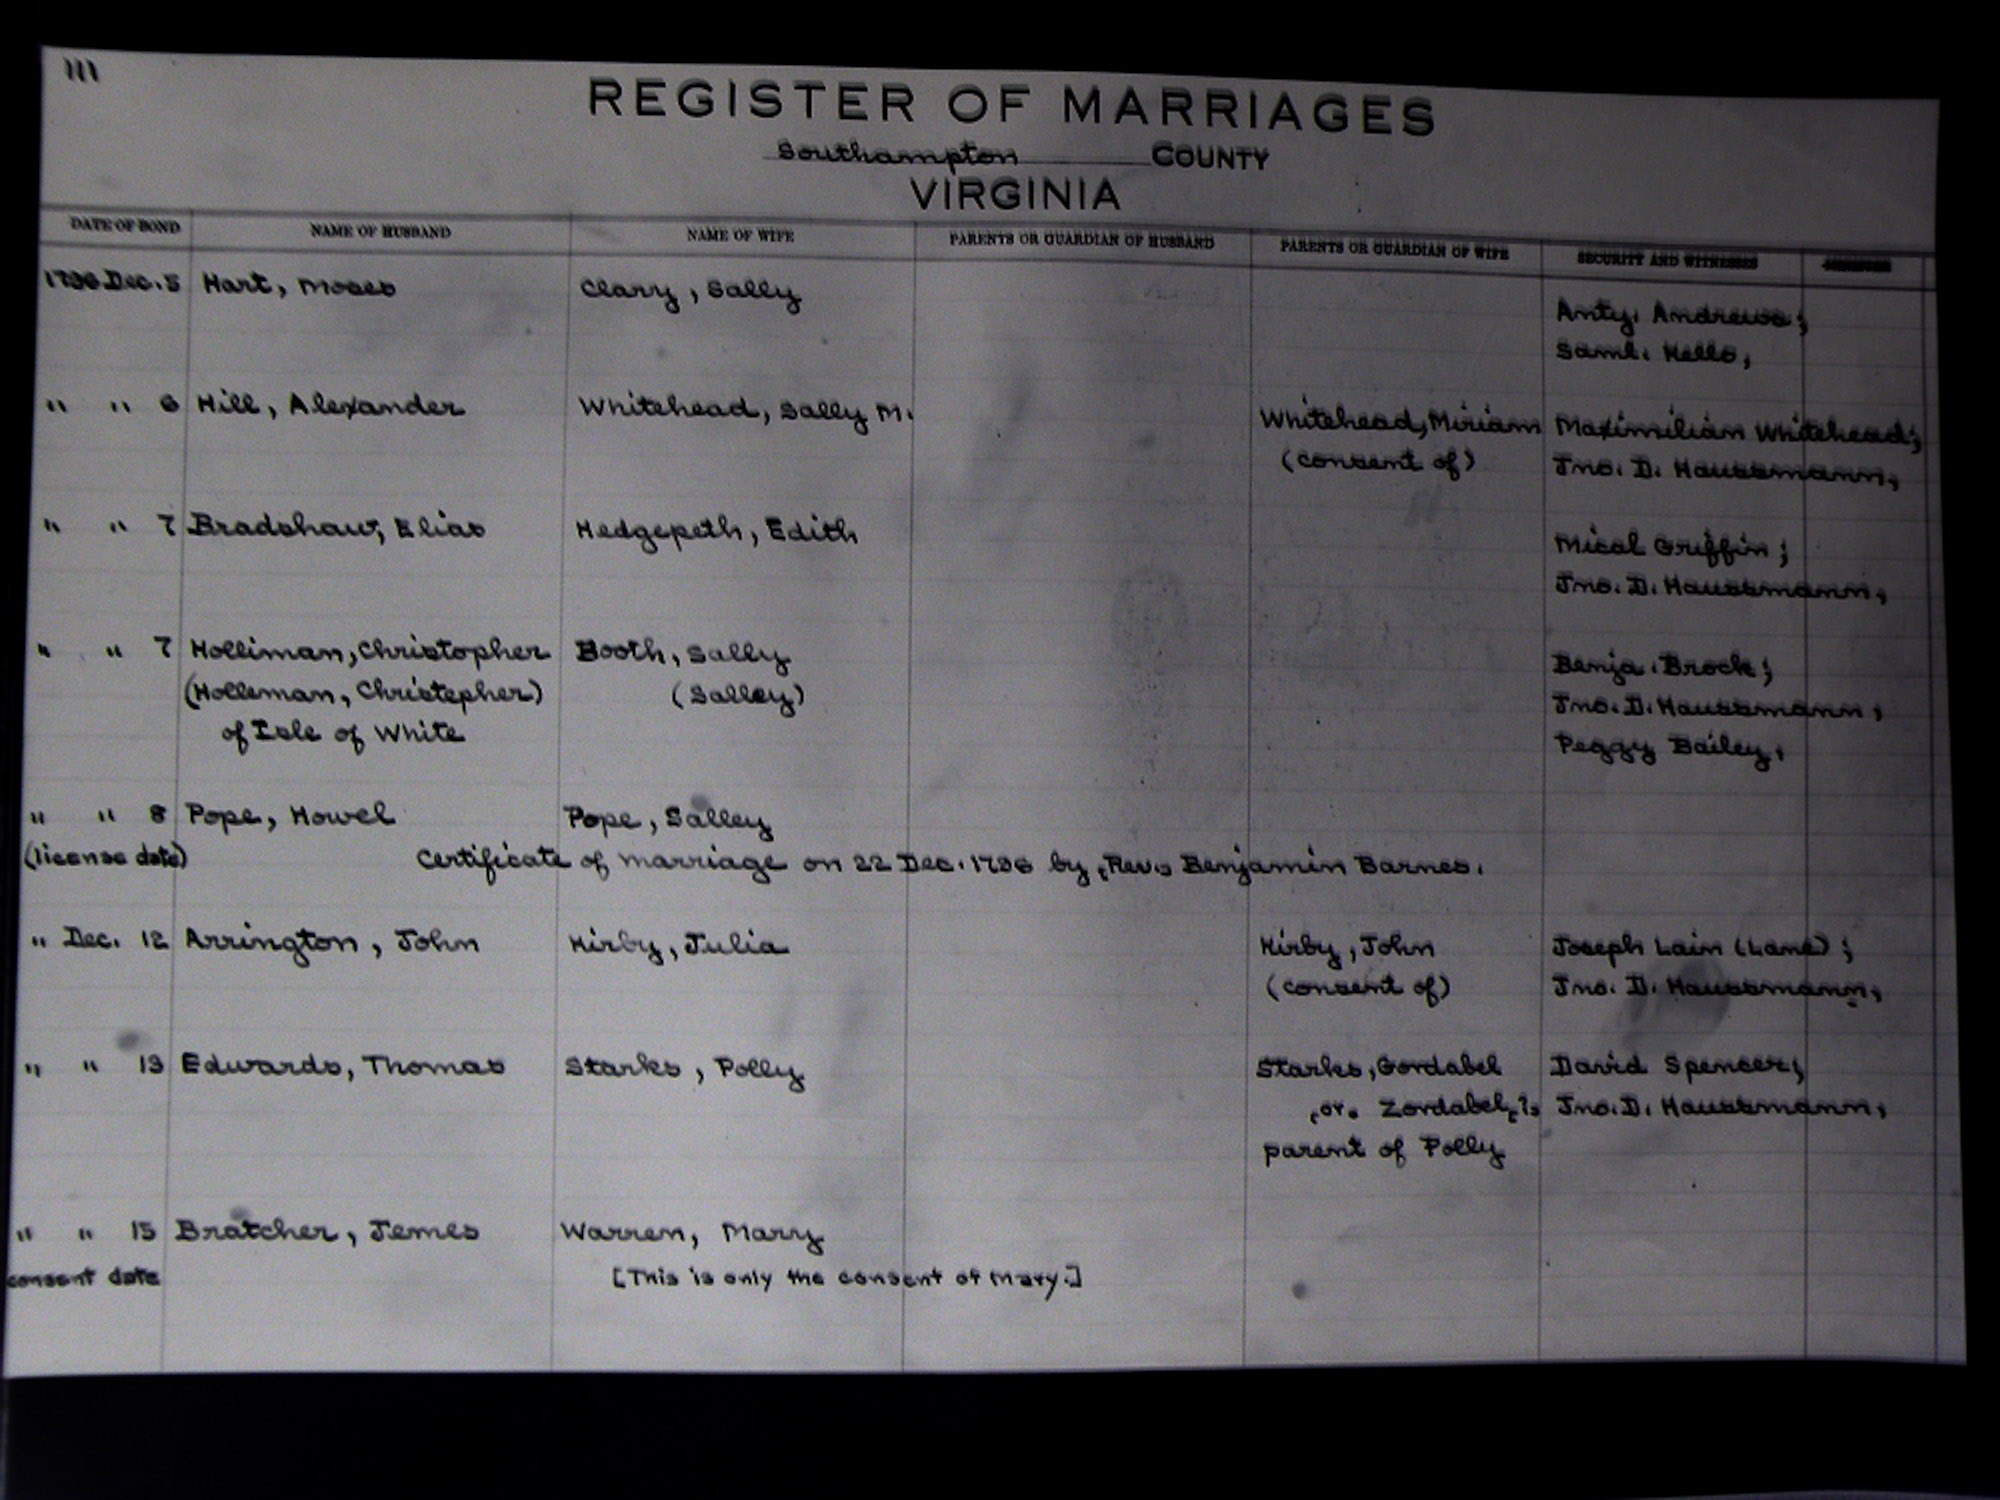 111
REGISTER OF MARRIAGES
Southampton COUNTY
VIRGINIA
DATE OF BOND NAME OF HUSBAND NAME OF WIFE PARENTS OR GUARDIAN OF HUSBAND PARENTS OR GUARDIAN OF WIFE SECURITY AND WITNESSES
1796 Dec. 5 Hart, Moses Clary, Sally
Anty. Andrews;
Saml. Kello,
" " 6 Hill, Alexander Whitehead, Sally M. Whitehead, Miriam Maximilian Whitehead;
(consent of) Jno. D. Haussmann,
" " 7 Bradshaw, Elias Hedgepeth, Edith Mical Griffin;
Jno. D. Haussmann,
" " 7 Holliman, Christopher Booth, Sally Benja. Brock;
(Holleman, Christepher) (Salley) Jno. D. Haussmann,
of Isle of White Peggy Bailey,
" " 8 Pope, Howel Pope, Salley
(license date) Certificate of marriage on 22 Dec. 1796 by [Rev.] Benjamin Barnes.
" Dec. 12 Arrington, John Kirby, Julia Kirby, John Joseph Lain (Lane);
(consent of) Jno. D. Haussmann,
" " 13 Edwards, Thomas Starks, Polly Starks, Gordabel David Spencer;
[or] Zordabel[?] Jno. D. Haussmann,
parent of Polly
" " 15 Bratcher, Jemes Warren, Mary
consent date [This is only the consent of Mary.]